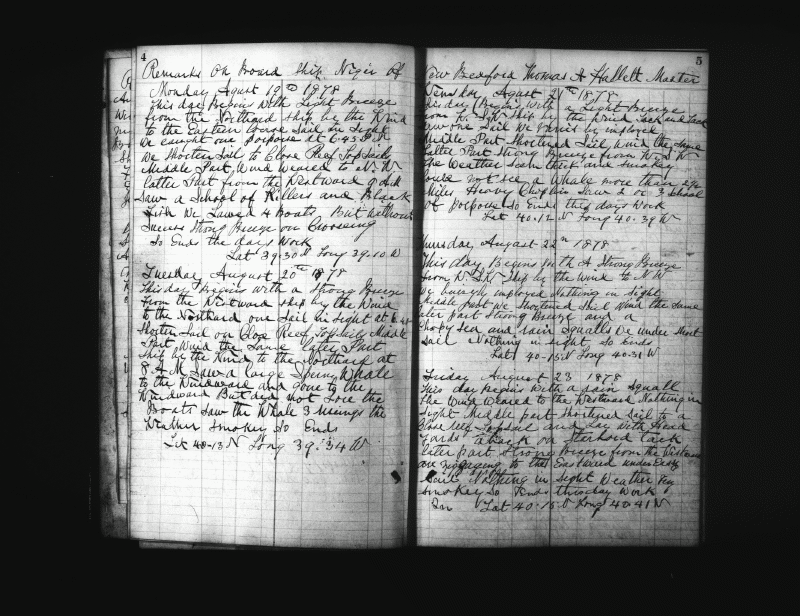 4
Remarks On Board Ship Niger Of
Monday Agust 19th 1878
This day Begins With Light Breeze
from the Northard ship by the Wind
to the Eastern Course Sail in Sight
We caught one porpoise at 6.45 P.M
We Shorten Sail to Close Reef Topsails
Middle Part Wind Weared to N.W
latter Part from the Westward
Saw a School of Killers and Black
fish We Lowered 4 Boats But without
Success Strong Breeze on Crossing
So Ends the days Work
Lat 39.30 N Long 39.10 W
Tuesday August 20th 1878
This day Begins With a Strong Breeze
from the Westward ship by the Wind
to the Northard one Sail in sight at 6.45
Shorten Sail on Close Reef Topsails Middle
Part Wind the Same latter Part
Ship by the Wind to the Northard at
8 A M Saw a large Sperm Whale
to the Windward and gone to the
Windward But did not Lore the
Boats Saw the Whale 3 risings the
Weather smokey So Ends
Lat 40-13 N Long 39.34 W
5
New Bedford Thomas A Hallett Master
Wensday Agust 21th 1878
this day Begins With a Light Breeze
from W.S.W Ship by the Wind
saw one Sail We Variis by imployed
Middle Part Shortened Sail Wind the Same
latter Part Strong Breeze from W.S.W
the Weather look thick and smokey
Could not see a Whale more than
Miles Heavy Chop Saw 2 or 3 School
of porpoise So Ends this days Work
Lat 40.12 N Long 40.39 W
Thursday August 22th 1878
This day Begins With A Strong Breeze
from W.S.W Ship by the Wind to N W
imployed Nothing in Sight
Middle part We Shortened Sail Wind the Same
later part Strong Breeze and a
Chopy Sea and rain Squalls We under Short
Sail Nothing in sight So Ends
Lat 40-15 N Long 40.31 W
Friday August 23 1878
this day begins with a rain Squall
the Wind Weared to the Westward Nothing in
Sight Middle part Shortened Sail to a
Close Reef Topsail and lay with Head
Yards aback on Starbord tack
later part Strong Breeze from the Western
are engageing to the Eastward under Easy
Sail Nothing in Sight Weather
smokey So Ends this day Work
Lat 40-15 N Long 40-41 W